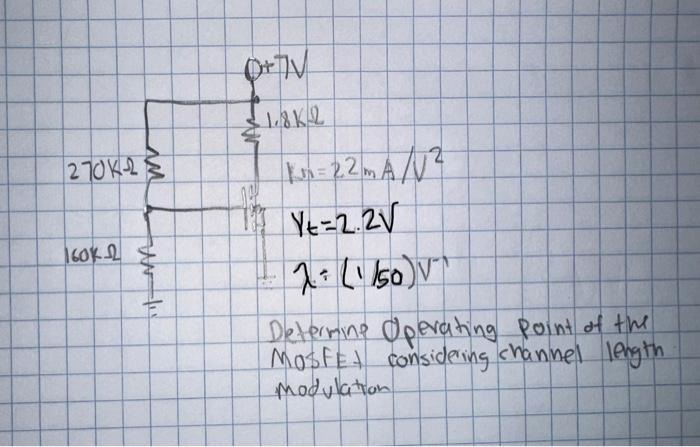 +7V
1.8KΩ
270KΩ
Kn=22mA/V²
Vt=2.2V
160KΩ
λ=(1/50)V⁻¹
Determine Operating point of the
MOSFET considering channel length
modulation